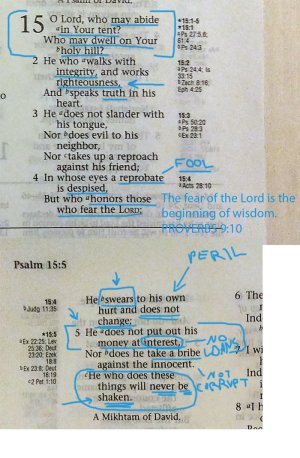 A Psalm of David.
15 O Lord, who may abide
ᵃin Your tent?
Who may dwell on Your
ᵇholy hill?
2 He who ᵃwalks with
integrity, and works
righteousness,
And ᵇspeaks truth in his
heart.
3 He ᵃdoes not slander with
his tongue,
Nor ᵇdoes evil to his
neighbor,
Nor ᶜtakes up a reproach
against his friend;
4 In whose eyes a reprobate
is despised,
But who ᵃhonors those
who fear the LORD;
*15:1-5
*15:1
ᵃPs 27:5,6;
61:4
ᵇPs 24:3
15:2
ᵃPs 24:4; Is
33:15
ᵇZech 8:16;
Eph 4:25
15:3
ᵃPs 50:20
ᵇPs 28:3
ᶜEx 23:1
FOOL
15:4
ᵃActs 28:10
The fear of the Lord is the
beginning of wisdom.
PROVERBS 9:10
Psalm 15:5
PERIL
15:4
ᵇJudg 11:35
*15:5
ᵃEx 22:25; Lev
25:36; Deut
23:20; Ezek
18:8
ᵇEx 23:8; Deut
16:19
ᶜ2 Pet 1:10
He ᵇswears to his own
hurt and does not
change;
5 He ᵃdoes not put out his
money at interest,
Nor ᵇdoes he take a bribe
against the innocent.
ᶜHe who does these
things will never be
shaken.
NO
LOANS
NOT
CORRUPT
A Mikhtam of David.
6 The
Ind
7 I wi
Ind
8 ᵃI h